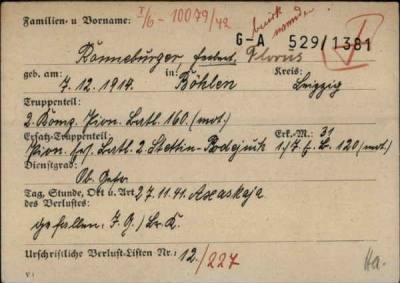 Familien- u Vorname: I/6-10079/42 beurk
G-A 529/1381
Rönneburger Herbert, Florus
geb. am: in: Kreis:
7. 12. 1914. Böhlen Leipzig
Truppenteil:
2. Komp. Pion. Batl. 160. (mot.)
Ersatz-Truppenteil Erk.-M.: 31
Pion. Ers. Batl. 2. Stettin-Podejuch 1./ 120 (mot.)
Dienstgrad:
Ob. Gefr.
Tag, Stunde, Ort u. Art 27. 11. 41. Axaskaja
des Verlustes:
gefallen, I. G./ Br. K.
Urschriftliche Verlust-Listen Nr.: 12/227
Ha.
V 1